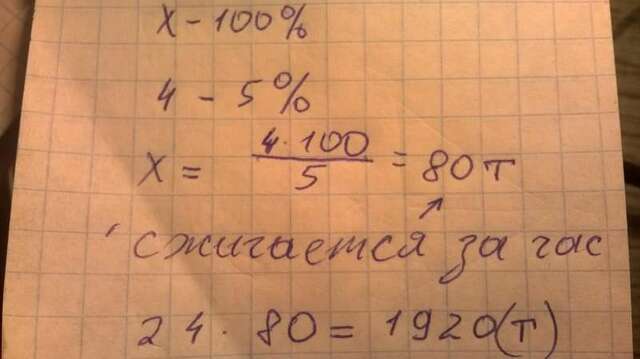 x - 100%
4 - 5%
x = 4·100/5 = 80 т
↗
сжигается за час
24 · 80 = 1920(т)